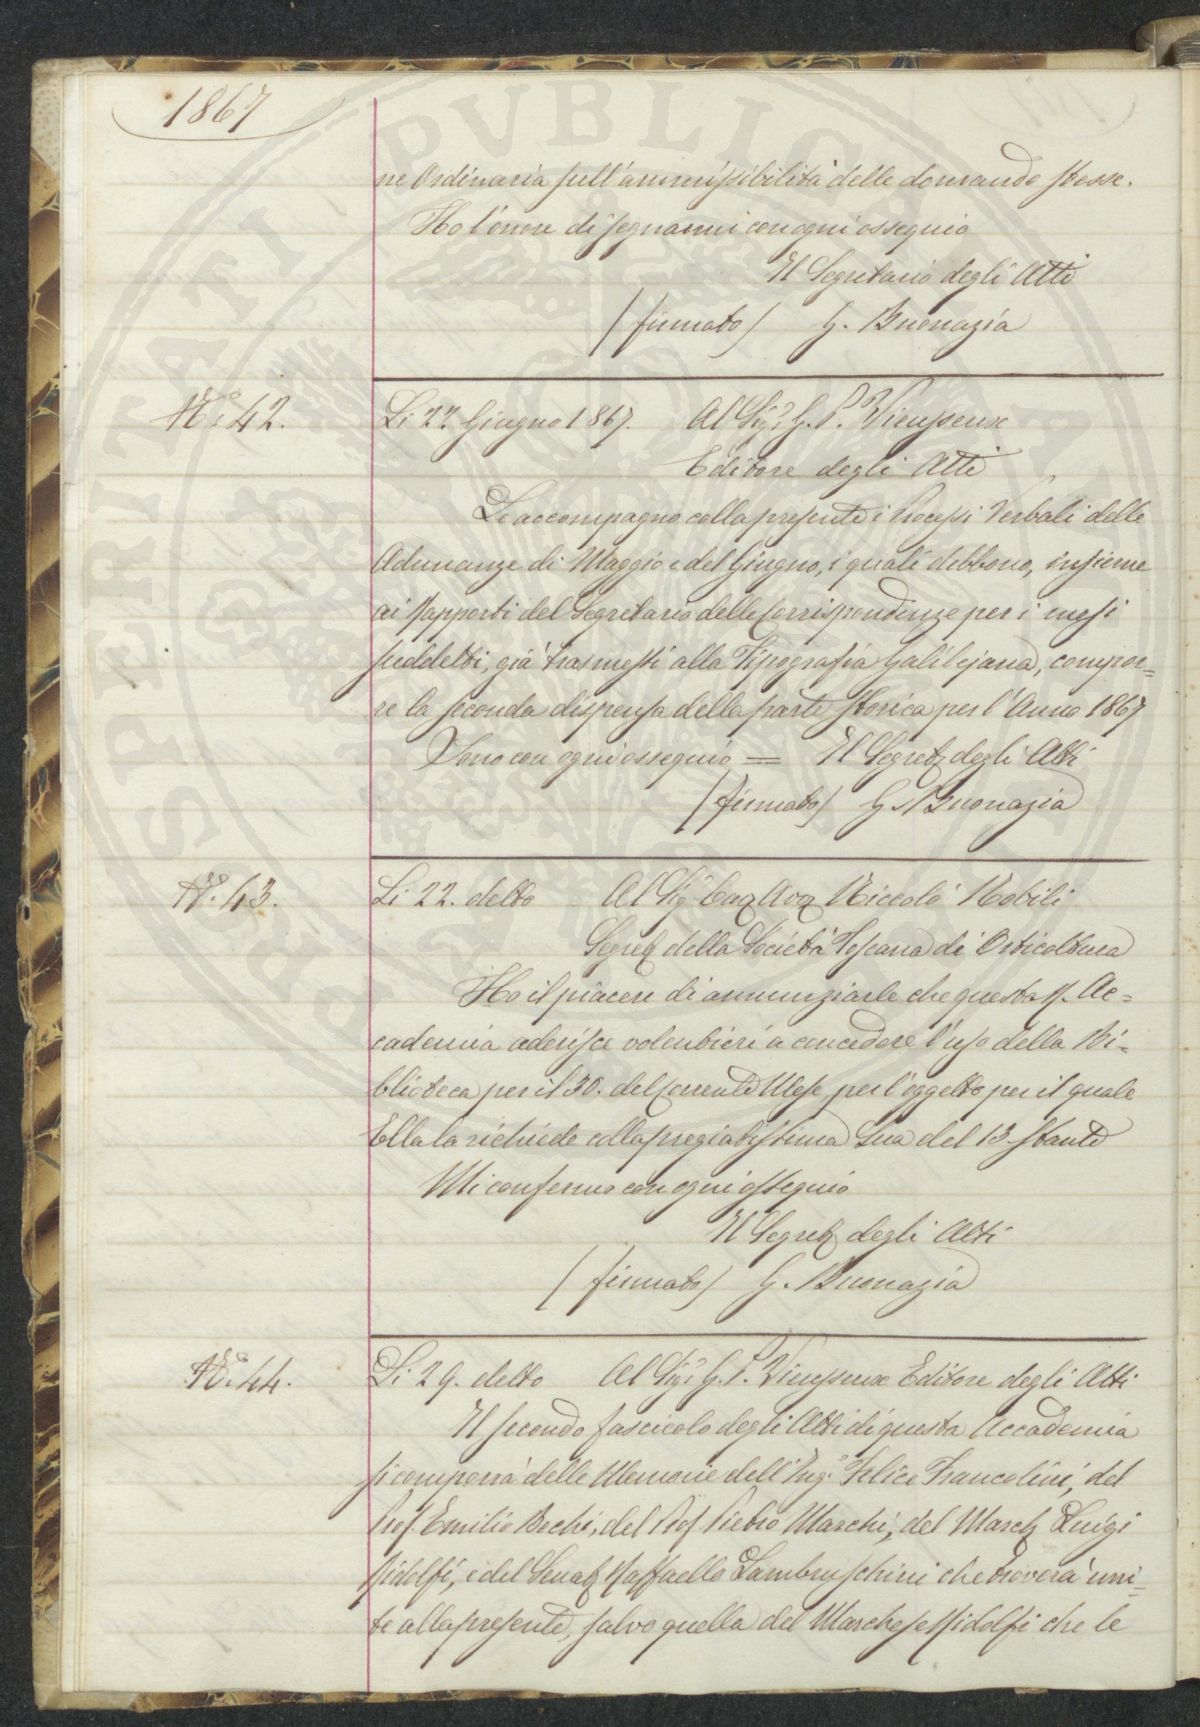 1867
ne Ordinaria sull'ammissibilità delle domande stesse.
Ho l'onore di segnarmi con ogni ossequio
Il Segretario degli Atti
(firmato) G. Buonazia
N.° 42.
Li 22 Giugno 1867. Al Sig.r G. P. Vieusseux
Editore degli Atti
Le accompagno colla presente i Processi Verbali delle
Adunanze di Maggio e del Giugno, i quali debbono, insieme
ai Rapporti del Segretario delle Corrispondenze per i mesi
suddetti, già trasmessi alla Tipografia Galilejana, compor=
re la seconda dispensa della parte storica per l'Anno 1867
Sono con ogni ossequio = Il Segret. degli Atti
(firmato) G. Buonazia
N.° 43.
Li 22. detto Al Sig.r Cav. Avv. Niccolò Nobili
Segret. della Società Toscana di Orticoltura
Ho il piacere di annunziarle che questa R. Ac=
cademia aderisce volentieri a concedere l'uso della Bi=
blioteca per il 30. del Corrente Mese per l'oggetto per il quale
Ella la richiede colla pregiatissima Sua del 13 stante
Mi confermo con ogni ossequio
Il Segret. degli Atti
(firmato) G. Buonazia
N.° 44.
Li 29. detto Al Sig.r G. P. Vieusseux Editore degli Atti
Il secondo fascicolo degli Atti di questa Accademia
si comporrà delle Memorie dell'Ing.e Felice Francolini, del
Prof. Emilio Bechi, del Prof. Pietro Marchi, del March. Luigi
Ridolfi, e del Senat. Raffaello Lambruschini che troverà uni=
te alla presente, salvo quella del Marchese Ridolfi che le
PRIVATI SPERITATI PUBLICA